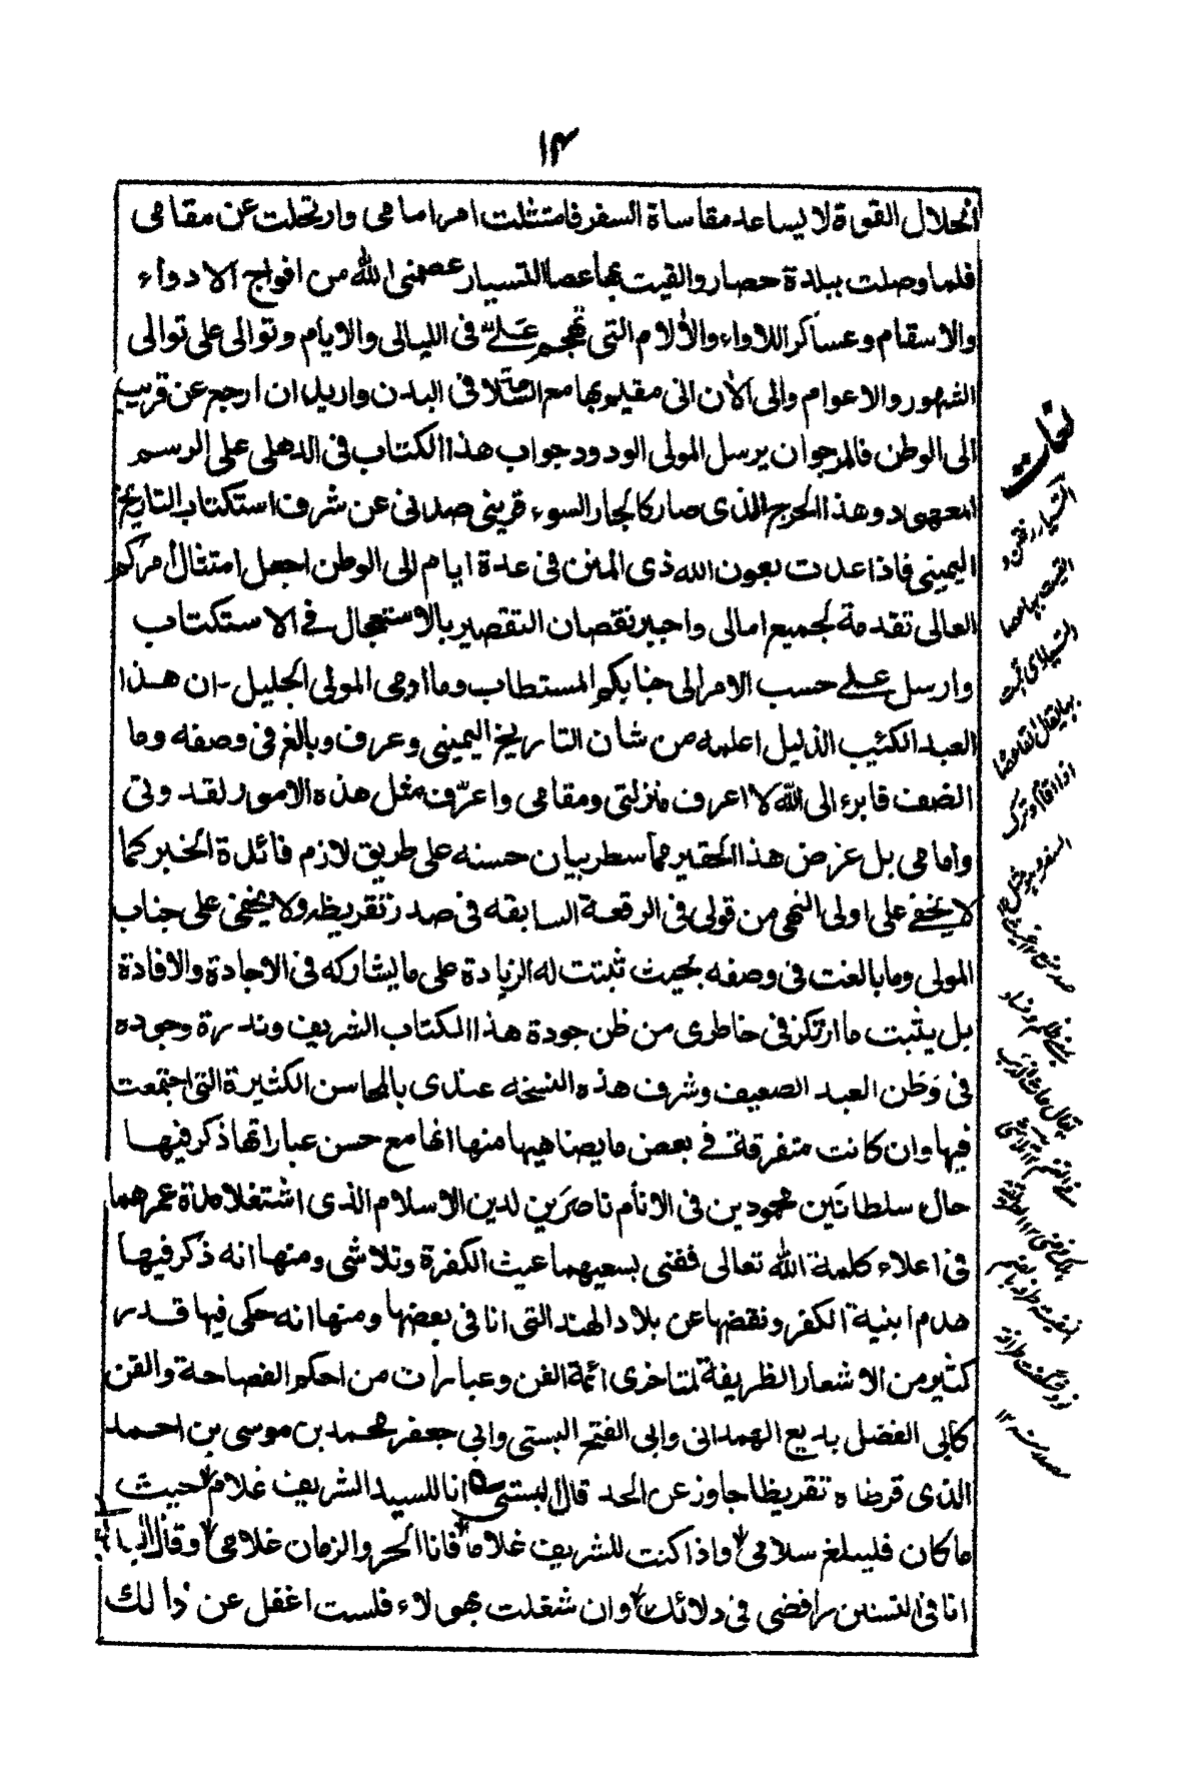 ١٤
انحلال القوة لا يساعد مقاساة السفر فامتثلت امرامامى وارتحلت عن مقامى
فلما وصلت ببلدة حصار والقيت بها عصا التسيار عصمنى الله من افواج الادواء
والاسقام وعساكر اللاواء والألام التى تهجم علىّ فى الليالى والايام وتوالى على توالى
الشهور والاعوام والى الأن انى مقيم بها مع السّلامة فى البدن واريد ان ارجع عن قريب
الى الوطن فالمرجوان يرسل المولى الودود جواب هذا الكتاب فى الدهلى على الرسم
المعهود وهذا الحرج الذى صار كالجار السوء قرينى صدنى عن شرف استكتاب التاريخ
اليمينى فاذا عدت بعون الله ذى المنن فى عدة ايام الى الوطن اجعل امتثال امركم
العالى تقدمة لجميع امالى واجبر نقصان التقصير بالاستعجال فے الاستكتاب
وارسل علے حسب الامر الى جنابكم المستطاب وما ادرى المولى الجليل - ان هذا
العبد الكئيب الذليل اعلمه من شان التاريخ اليمينى وعرف وبالغ فى وصفه وما
انصف فابرء الى الله لا اعرف منزلتى ومقامى واعرّف مثل هذه الامور لقد ونى
وامامى بل غرض هذا الحقير مما سطر بيان حسنه على طريق لازم فائدة الخبر كما
لا يخفے على اولى النهى من قولى فى الرقعة السابقه فى صدر تقريظه ولا يخفى على جناب
المولى وما بالغت فى وصفه بحيث ثبتت له الزيادة على ما يشاركه فى الاجادة والافادة
بل يثبت ما ارتكز فى خاطرى من ظن جودة هذا الكتاب الشريف وندرة وجوده
فى وَطَن العبد الضعيف وشرف هذه النسخه عندى بالمحاسن الكثيرة التى اجتمعت
فيها وان كانت متفرقة فے بعض ما يضاهيها منها انها مع حسن عباراتها ذكر فيها
حال سلطانَين محمودين فى الانأم ناصرَين لدين الاسلام الذى اشتغلا مدة عمرهما
فى اعلاء كلمة الله تعالى ففنى بسعيهما عيث الكفرة وتلاشى ومنها انه ذكر فيها
هدم ابنية الكفر ونقضها عن بلاد الهند التى انا فى بعضها ومنها انه حكى فيها قدر
كثير من الاشعار الظريفة لمتاخرى ائمة الفن وعبارات من احكم الفصاحة والقن
كابى الفضل بديع الهمدانى وابى الفتح البستى وابى جعفر محمد بن موسى بن احمد
الذى قرظاه تقريظا جاوز عن الحد قال البستى انا للسيد الشريف غلام حيث
ما كان فليبلغ سلامى واذا كنت للشريف غلاما فانا الحر والزمان غلامى وقال
انا فى التسنن رافضى فى ولائك وان شغلت بهولاء فلست اغفل عن ذالك
لغات
التسيار رفتن و
القيت بها عصا
التسيار اى اقمت
بها يقال القى عصا
اذا اقام وترك
السفر